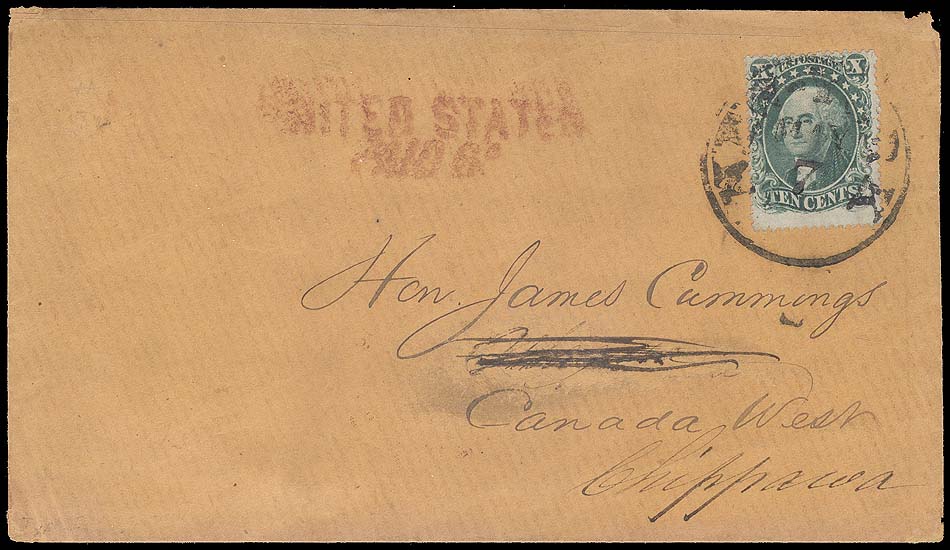 UNITED STATES
U.S. POSTAGE
X X
MAY
7
TEN CENTS
Hon. James Cummings
Canada West
Chippawa